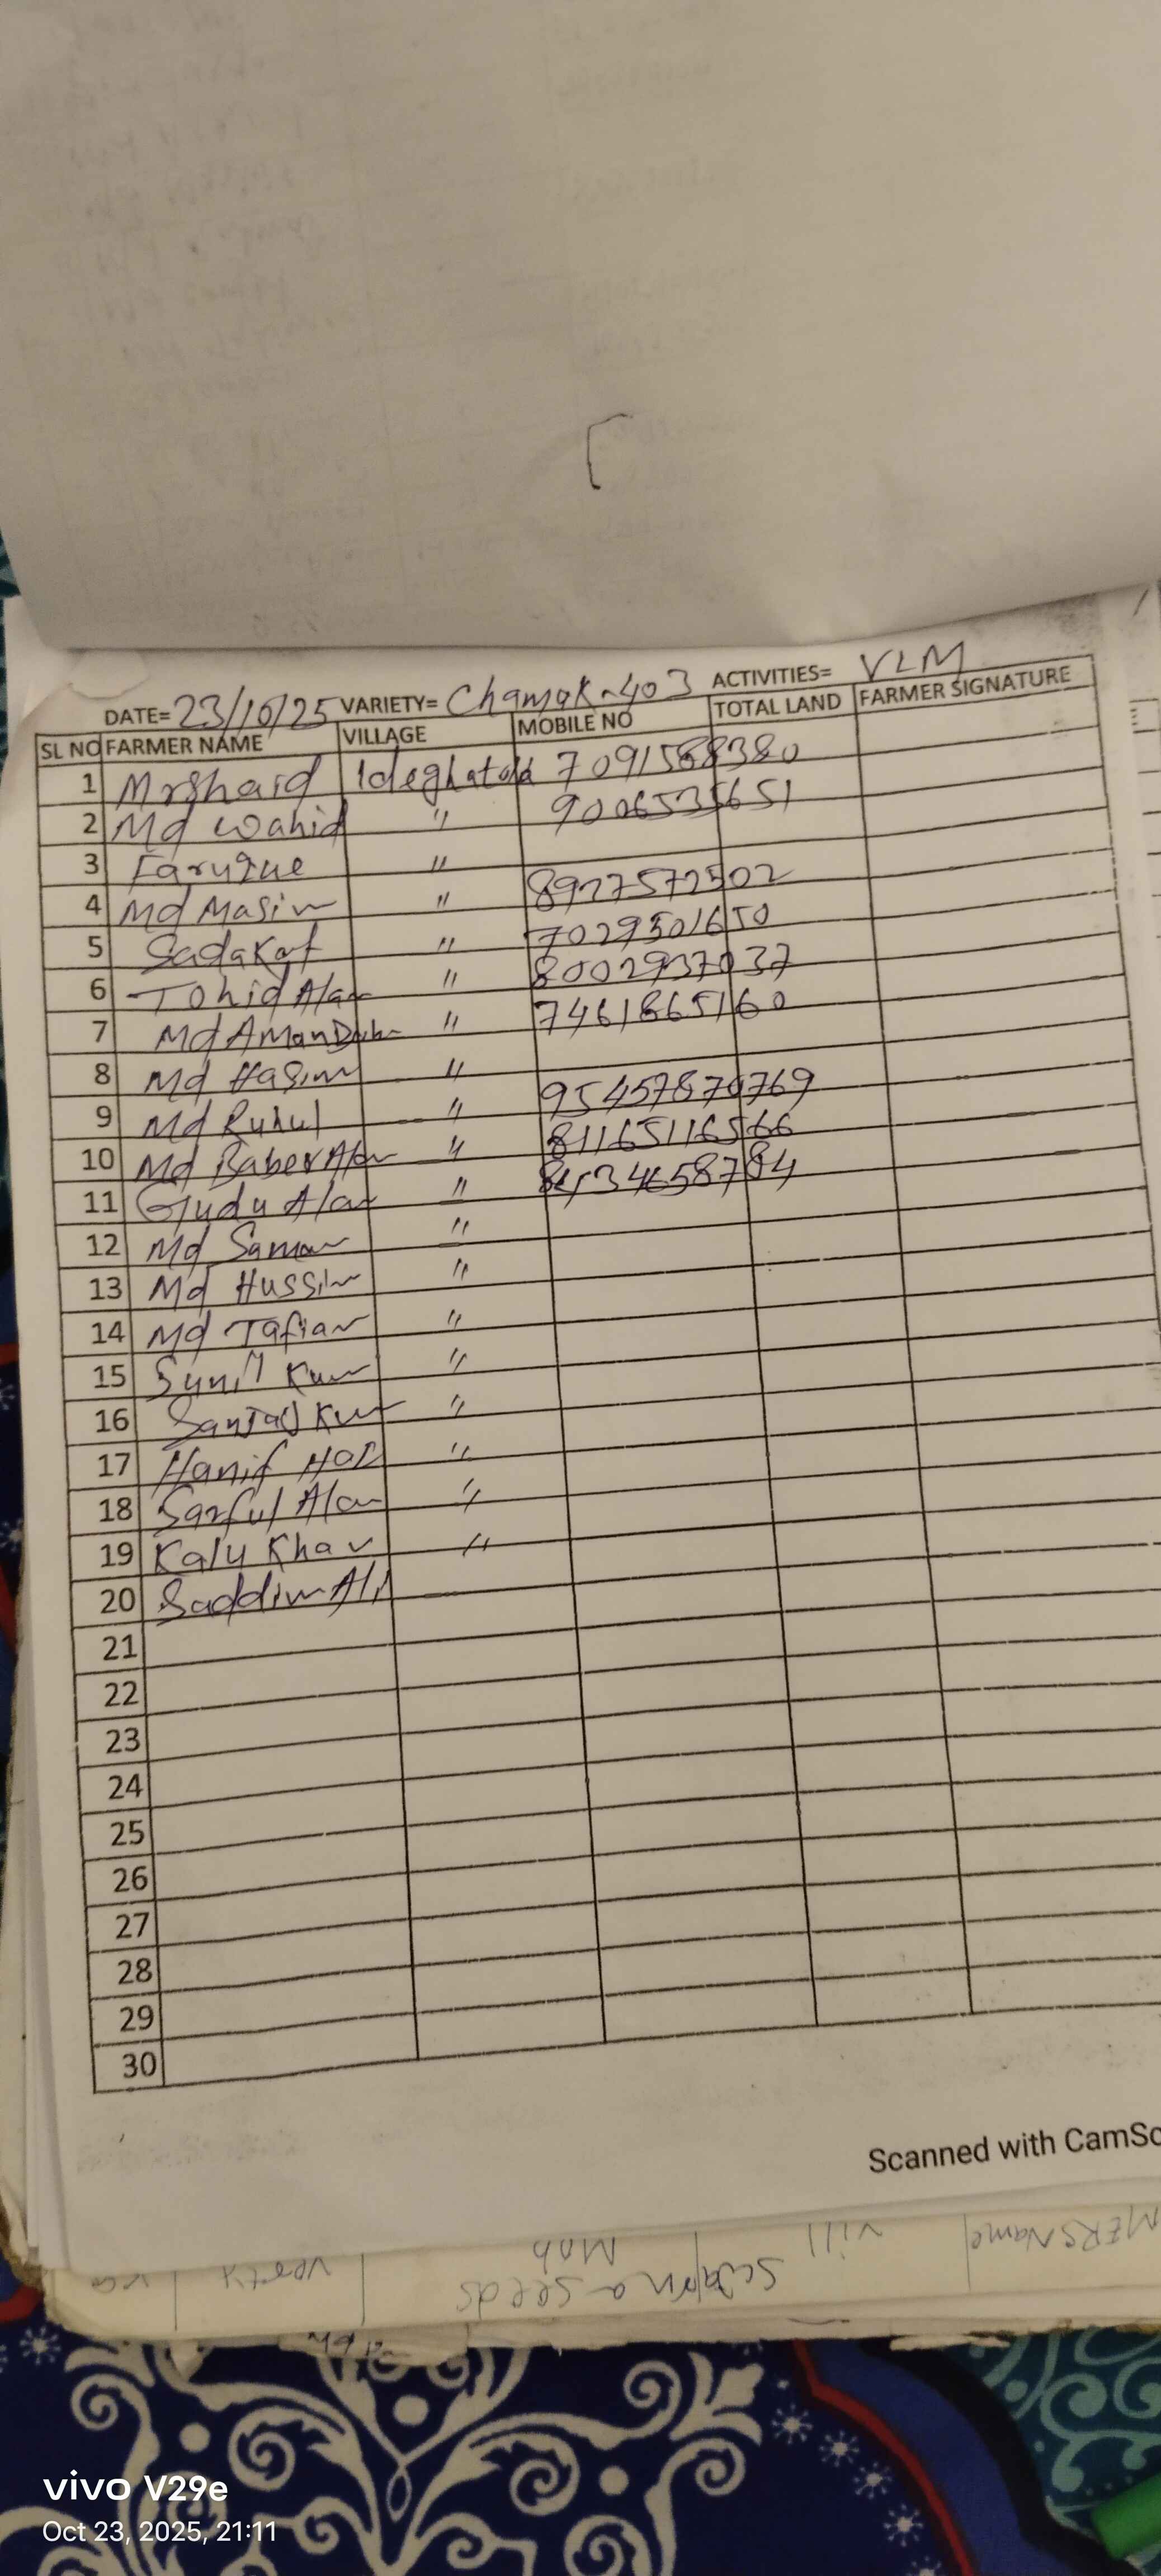 DATE= 23/10/25 VARIETY= Chamak-403 ACTIVITIES= VLM
SL NO FARMER NAME VILLAGE MOBILE NO TOTAL LAND FARMER SIGNATURE
1 Mrshaid 7091588380
2 Md Wahid " 9006535651
3 Faruque "
4 Md Masim " 8927572502
5 Sadakat " 7029501650
6 Tohid Alam " 8002937037
7 Md Aman " 7461865160
8 Md Hasim "
9 Md Ruhul " 95457870769
10 Md Baber Alam " 81165116566
11 Gudu Alam "
12 Md "
13 Md Hussim "
14 Md "
15 Sunil Kum "
16 Kum "
17 Hanif "
18 Sarful Alam "
19 Kalu Khan "
20 Saddim Ali
21
22
23
24
25
26
27
28
29
30
Scanned with CamSc
MERS Name vill Mob verty
Swarna seeds
vivo V29e
Oct 23, 2025, 21:11